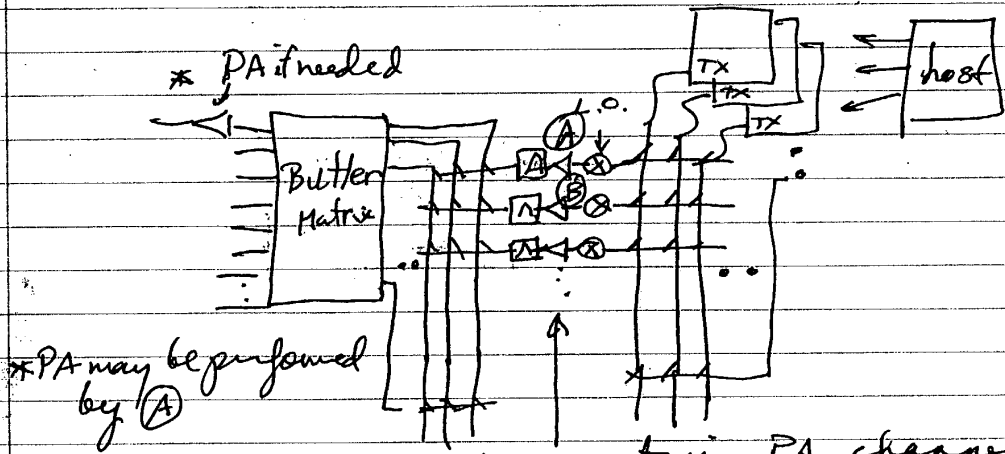 * PA if needed
TX
TX
TX
host
L.O.
A
B
Butler
Matrix
*PA may be performed
by A
PA change